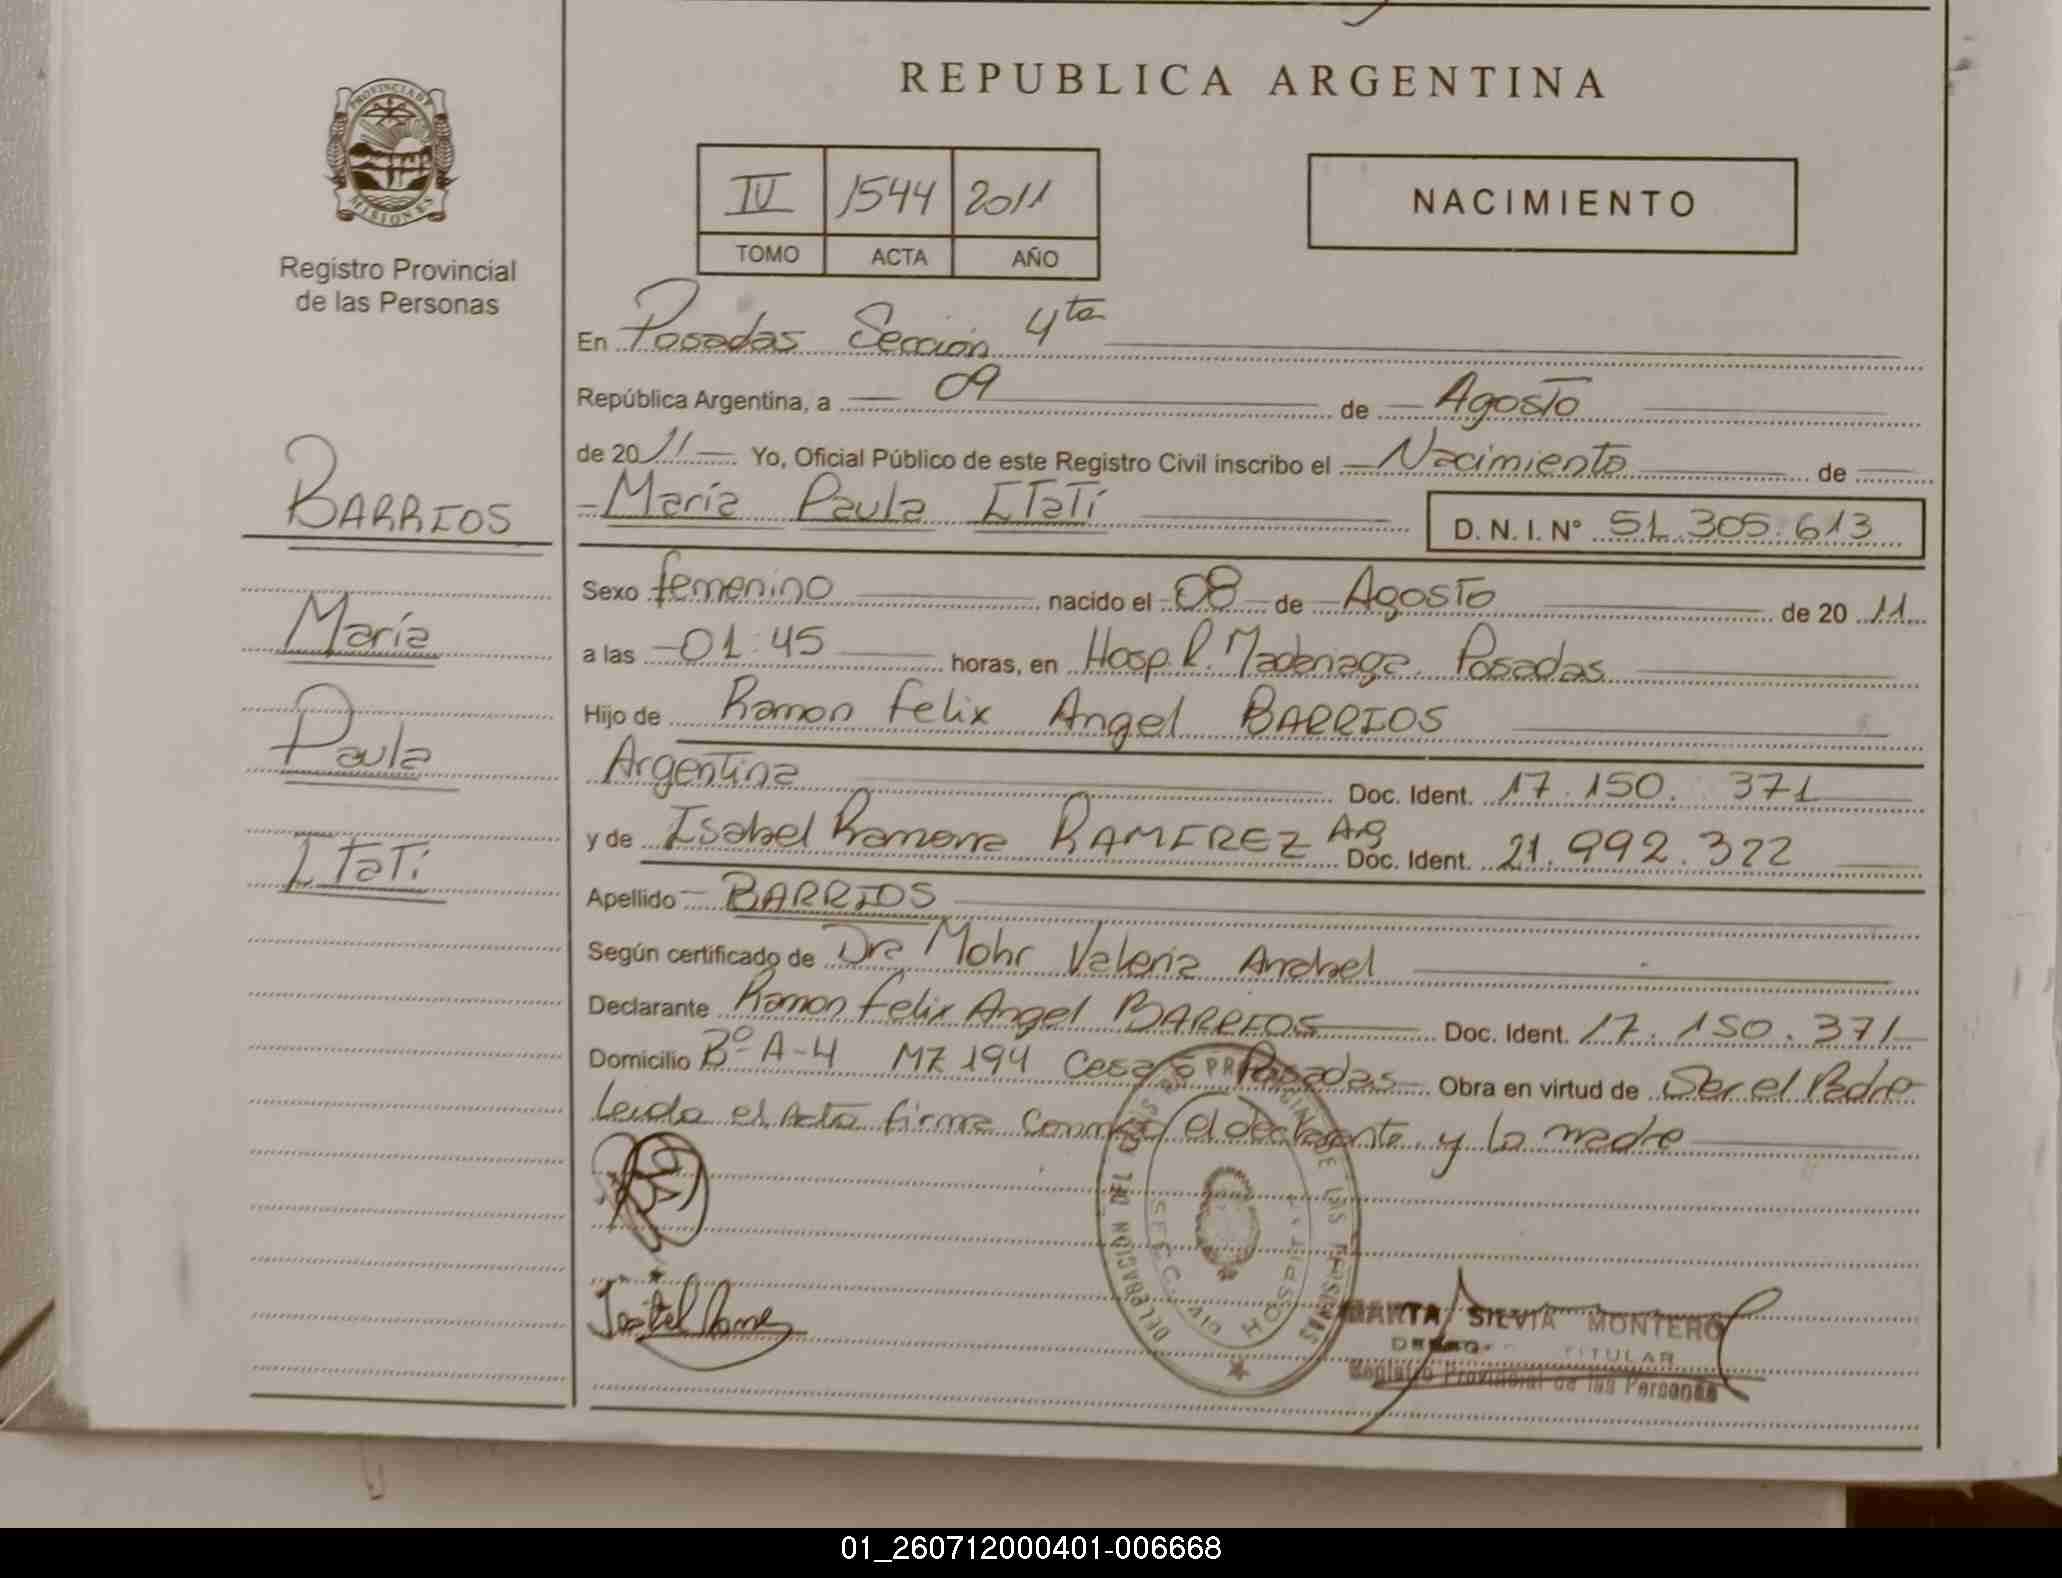 REPUBLICA ARGENTINA
PROVINCIA DE
MISIONES
Registro Provincial
de las Personas
IV 1544 2011
TOMO ACTA AÑO
NACIMIENTO
BARRIOS
María
Paula
Itatí
En Posadas Sección 4ta
República Argentina, a 09 de Agosto
de 2011 Yo, Oficial Público de este Registro Civil inscribo el Nacimiento de
María Paula Itatí D. N. I. N° 51.305.613
Sexo femenino nacido el 08 de Agosto de 2011
a las 01:45 horas, en Hosp. R. Madariaga. Posadas
Hijo de Ramon Felix Angel BARRIOS
Argentina Doc. Ident. 17.150.371
y de Isabel Ramona RAMIREZ Arg Doc. Ident. 21.992.322
Apellido BARRIOS
Según certificado de Dra Mohr Valeria Anabel
Declarante Ramon Felix Angel BARRIOS Doc. Ident. 17.150.371
Domicilio Bº A-4 MZ 194 Casa Posadas Obra en virtud de Ser el Padre
Leida el Acta firma conmigo el declarante y la madre
DELEGACION DEL REGISTRO PROVINCIAL DE LAS PERSONAS
SECC. IV HOSPITAL
MARTA SILVIA MONTERO
TITULAR
Registro Provincial de las Personas
01_260712000401-006668